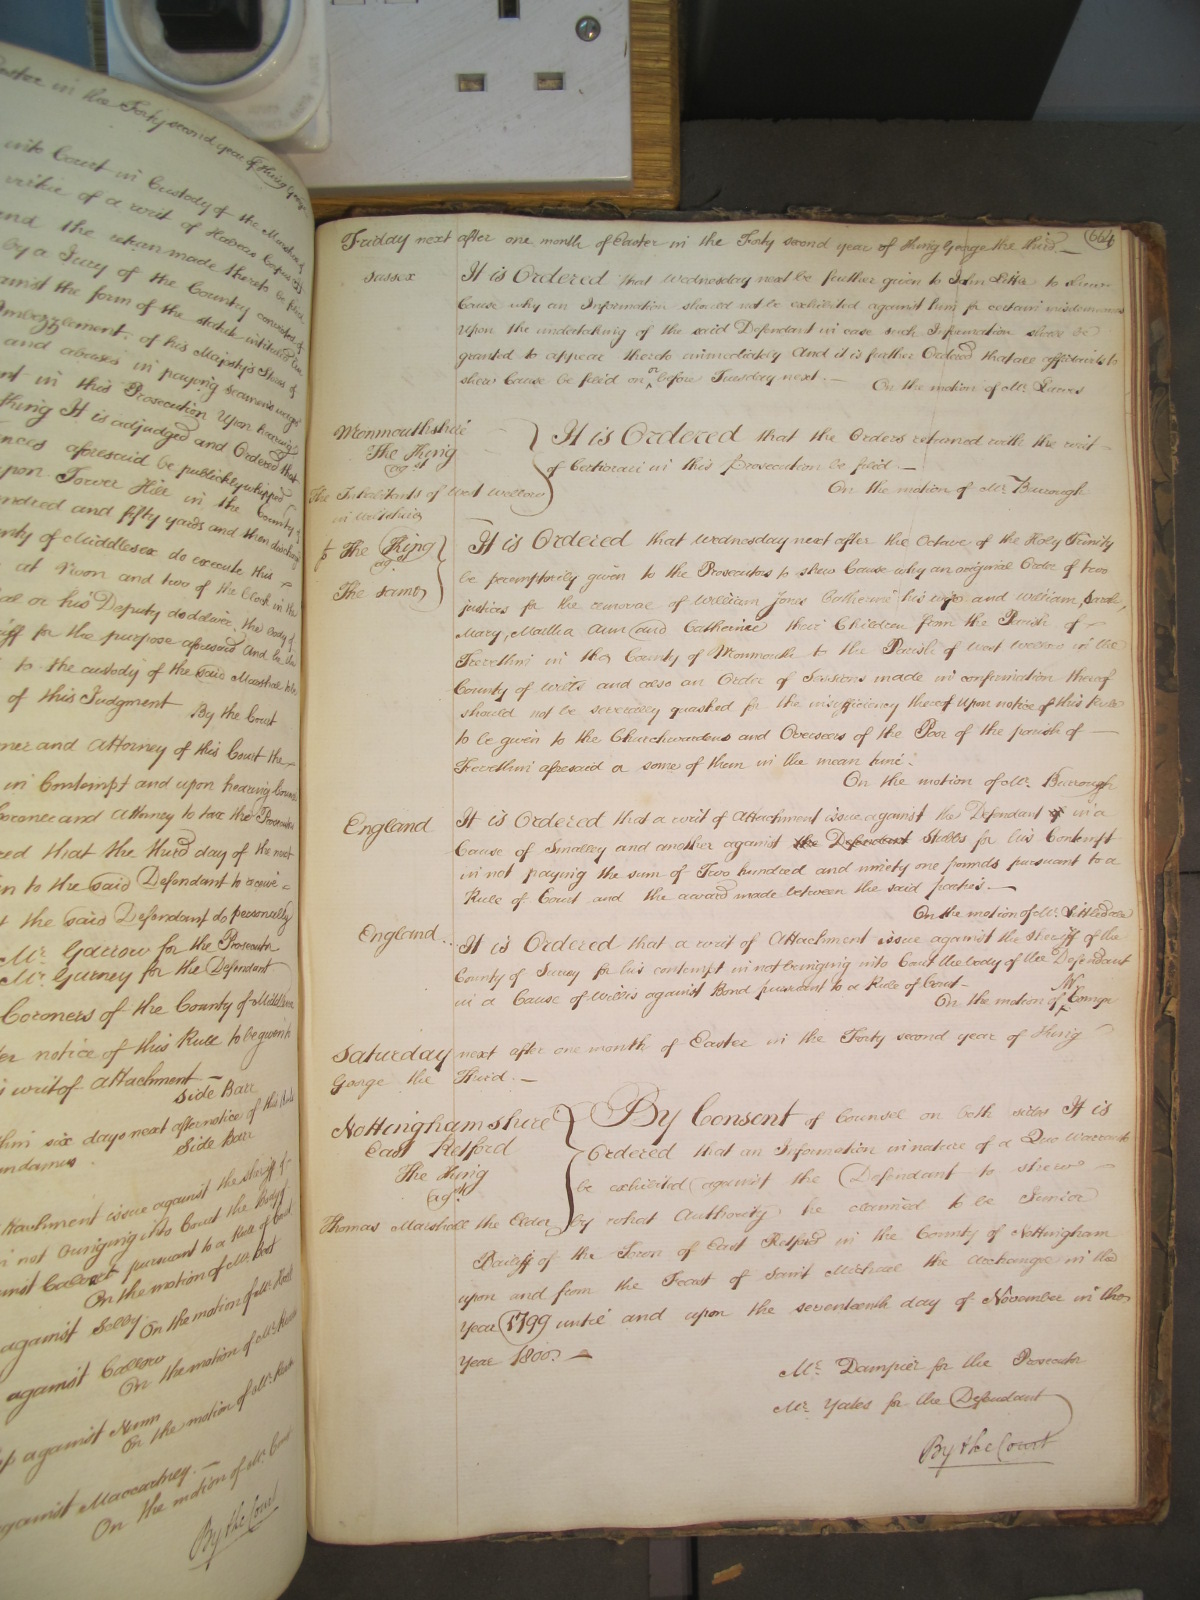 Easter in the Forty second year of King George
into Court in Custody of the Marshal
virtue of a writ of Habeas Corpus
and the return made thereto be filed
by a Jury of the Country convicted of
against the form of the statute intituled
Embezzlement of his Majesty's Stores
and abuses in paying seamen's wages
in this Prosecution Upon hearing
King It is adjudged and Ordered that
aforesaid be publickly whipped
upon Tower Hill in the County of
hundred and fifty yards and then
County of Middlesex do execute this
at Noon and two of the Clock in the
or his Deputy do deliver the body of
for the purpose aforesaid And
to the custody of the said Marshal
of this Judgment By the Court
Coroner and Attorney of this Court the
in Contempt and upon hearing Counsel
Coroner and Attorney to tax the Prosecutor
Ordered that the third day of the next
to the said Defendant to
the said Defendant do personally
Mr. Garrow for the Prosecutor
Mr. Gurney for the Defendant
Coroners of the County of Middlesex
after notice of this Rule to be given
writ of Attachment
Side Barr
within six days next after notice of this Rule
Mandamus. Side Barr
Attachment issue against the sheriff of
in not bringing into Court the body of
against pursuant to a Rule of Court
On the motion of Mr.
against Selby On the motion of Mr.
against Callow
On the motion of Mr.
against Nunn
On the motion of Mr.
against Maccartney.
On the motion of Mr.
By the Court
Friday next after one month of Easter in the Forty second year of King George the third. 664
Sussex It is Ordered that Wednesday next be further given to John to shew
Cause why an Information should not be exhibited against him for certain misdemeanors
Upon the undertaking of the said Defendant in case such Information should be
granted to appear thereto immediately And it is further Ordered that all affidavits to
shew Cause be filed on or before Tuesday next. On the motion of Mr. Lawes
Monmouthshire It is Ordered that the Orders returned with the writ
The King
agst of Certiorari in this Prosecution be filed.
The Inhabitants of West Wellow On the motion of Mr. Burough
in Wiltshire
The King It is Ordered that Wednesday next after the Octave of the Holy Trinity
agst be peremptorily given to the Prosecutors to shew Cause why an original Order of two
The same justices for the removal of William Jones Catherine his wife and William, Sarah,
Mary, Martha Ann and Catherine their Children from the Parish of
Trevethin in the County of Monmouth to the Parish of West Wellow in the
County of Wilts and also an Order of Sessions made in confirmation thereof
should not be severally quashed for the insufficiency thereof Upon notice of this Rule
to be given to the Churchwardens and Overseers of the Poor of the parish of
Trevethin aforesaid or some of them in the mean time.
On the motion of Mr. Burrough
England It is Ordered that a writ of Attachment issue against the Defendant in a
Cause of Smalley and another against the Defendant Stubbs for his Contempt
in not paying the sum of Two hundred and ninety one pounds pursuant to a
Rule of Court and the award made between the said parties.
On the motion of Mr. Littledale
England It is Ordered that a writ of Attachment issue against the sheriff of the
County of Surrey for his contempt in not bringing into Court the body of the Defendant
in a Cause of Willis against Bond pursuant to a Rule of Court
On the motion of Mr.
Saturday next after one month of Easter in the Forty second year of King
George the Third.
Nottinghamshire By Consent of Counsel on both sides It is
East Retford Ordered that an Information in nature of a Quo Warranto
The King be exhibited against the Defendant to shew
agst
Thomas Marshall the Elder by what Authority he claimed to be Junior
Bailiff of the Town of East Retford in the County of Nottingham
upon and from the Feast of Saint Michael the Archangel in the
Year 1799 until and upon the seventeenth day of November in the
Year 1800.
Mr. Dampier for the Prosecutor
Mr. Yates for the Defendant
By the Court